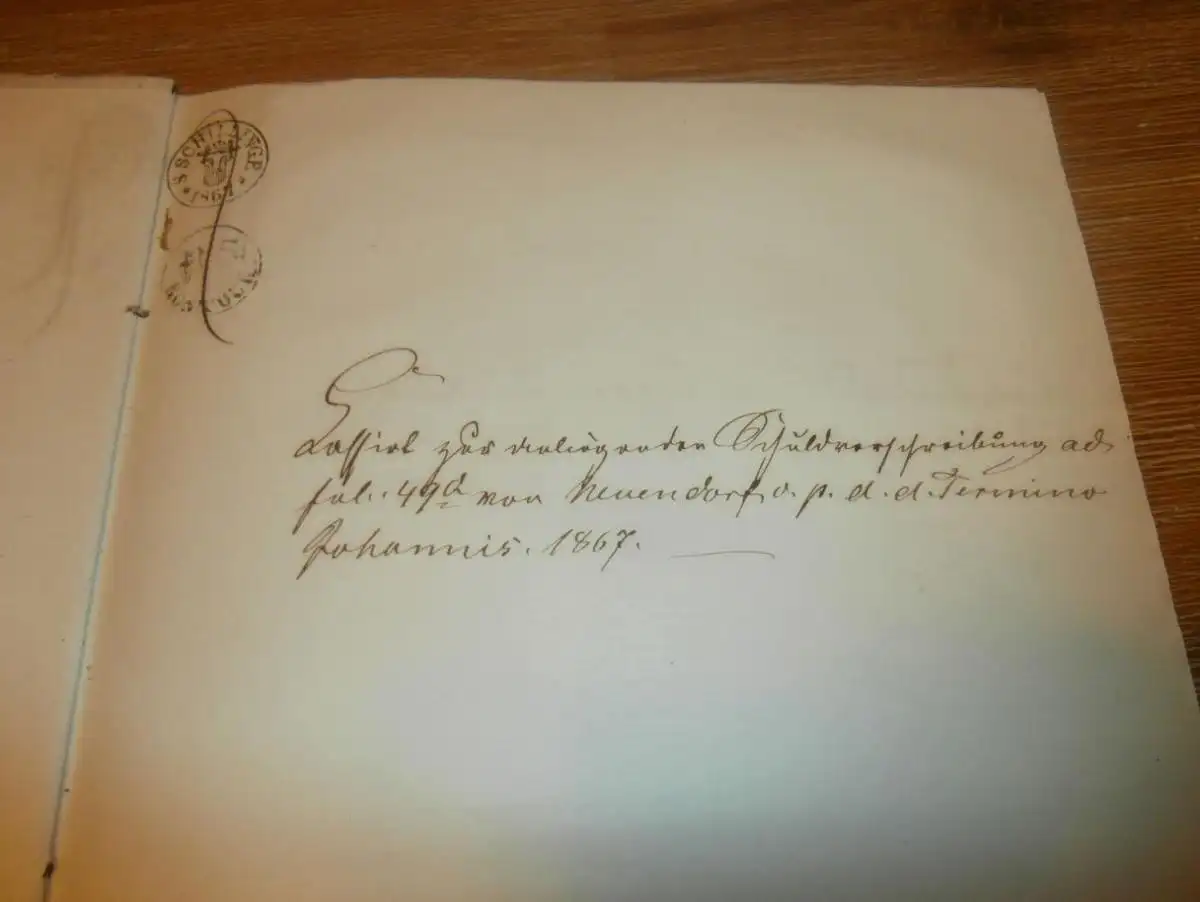 * 8 SCHILLINGP. *
1867
Cassirt zur anliegenden Schuldverschreibung ad
fol. 49d von Neuendorf o. p. d. d. Termino
Johannis. 1867.